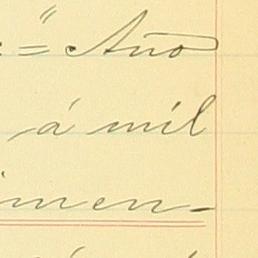 :=" Año
á mil
imen-